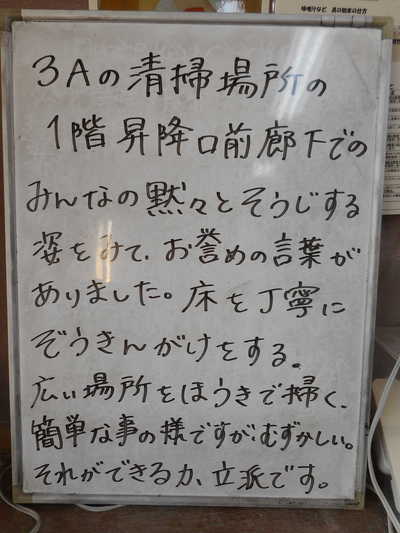 味噌汁など 具の始末の仕方
3Aの清掃場所の
1階昇降口前廊下での
みんなの黙々とそうじする
姿をみて、お誉めの言葉が
ありました。床を丁寧に
ぞうきんがけをする。
広い場所をほうきで掃く、
簡単な事の様ですが、むずかしい。
それができる力、立派です。